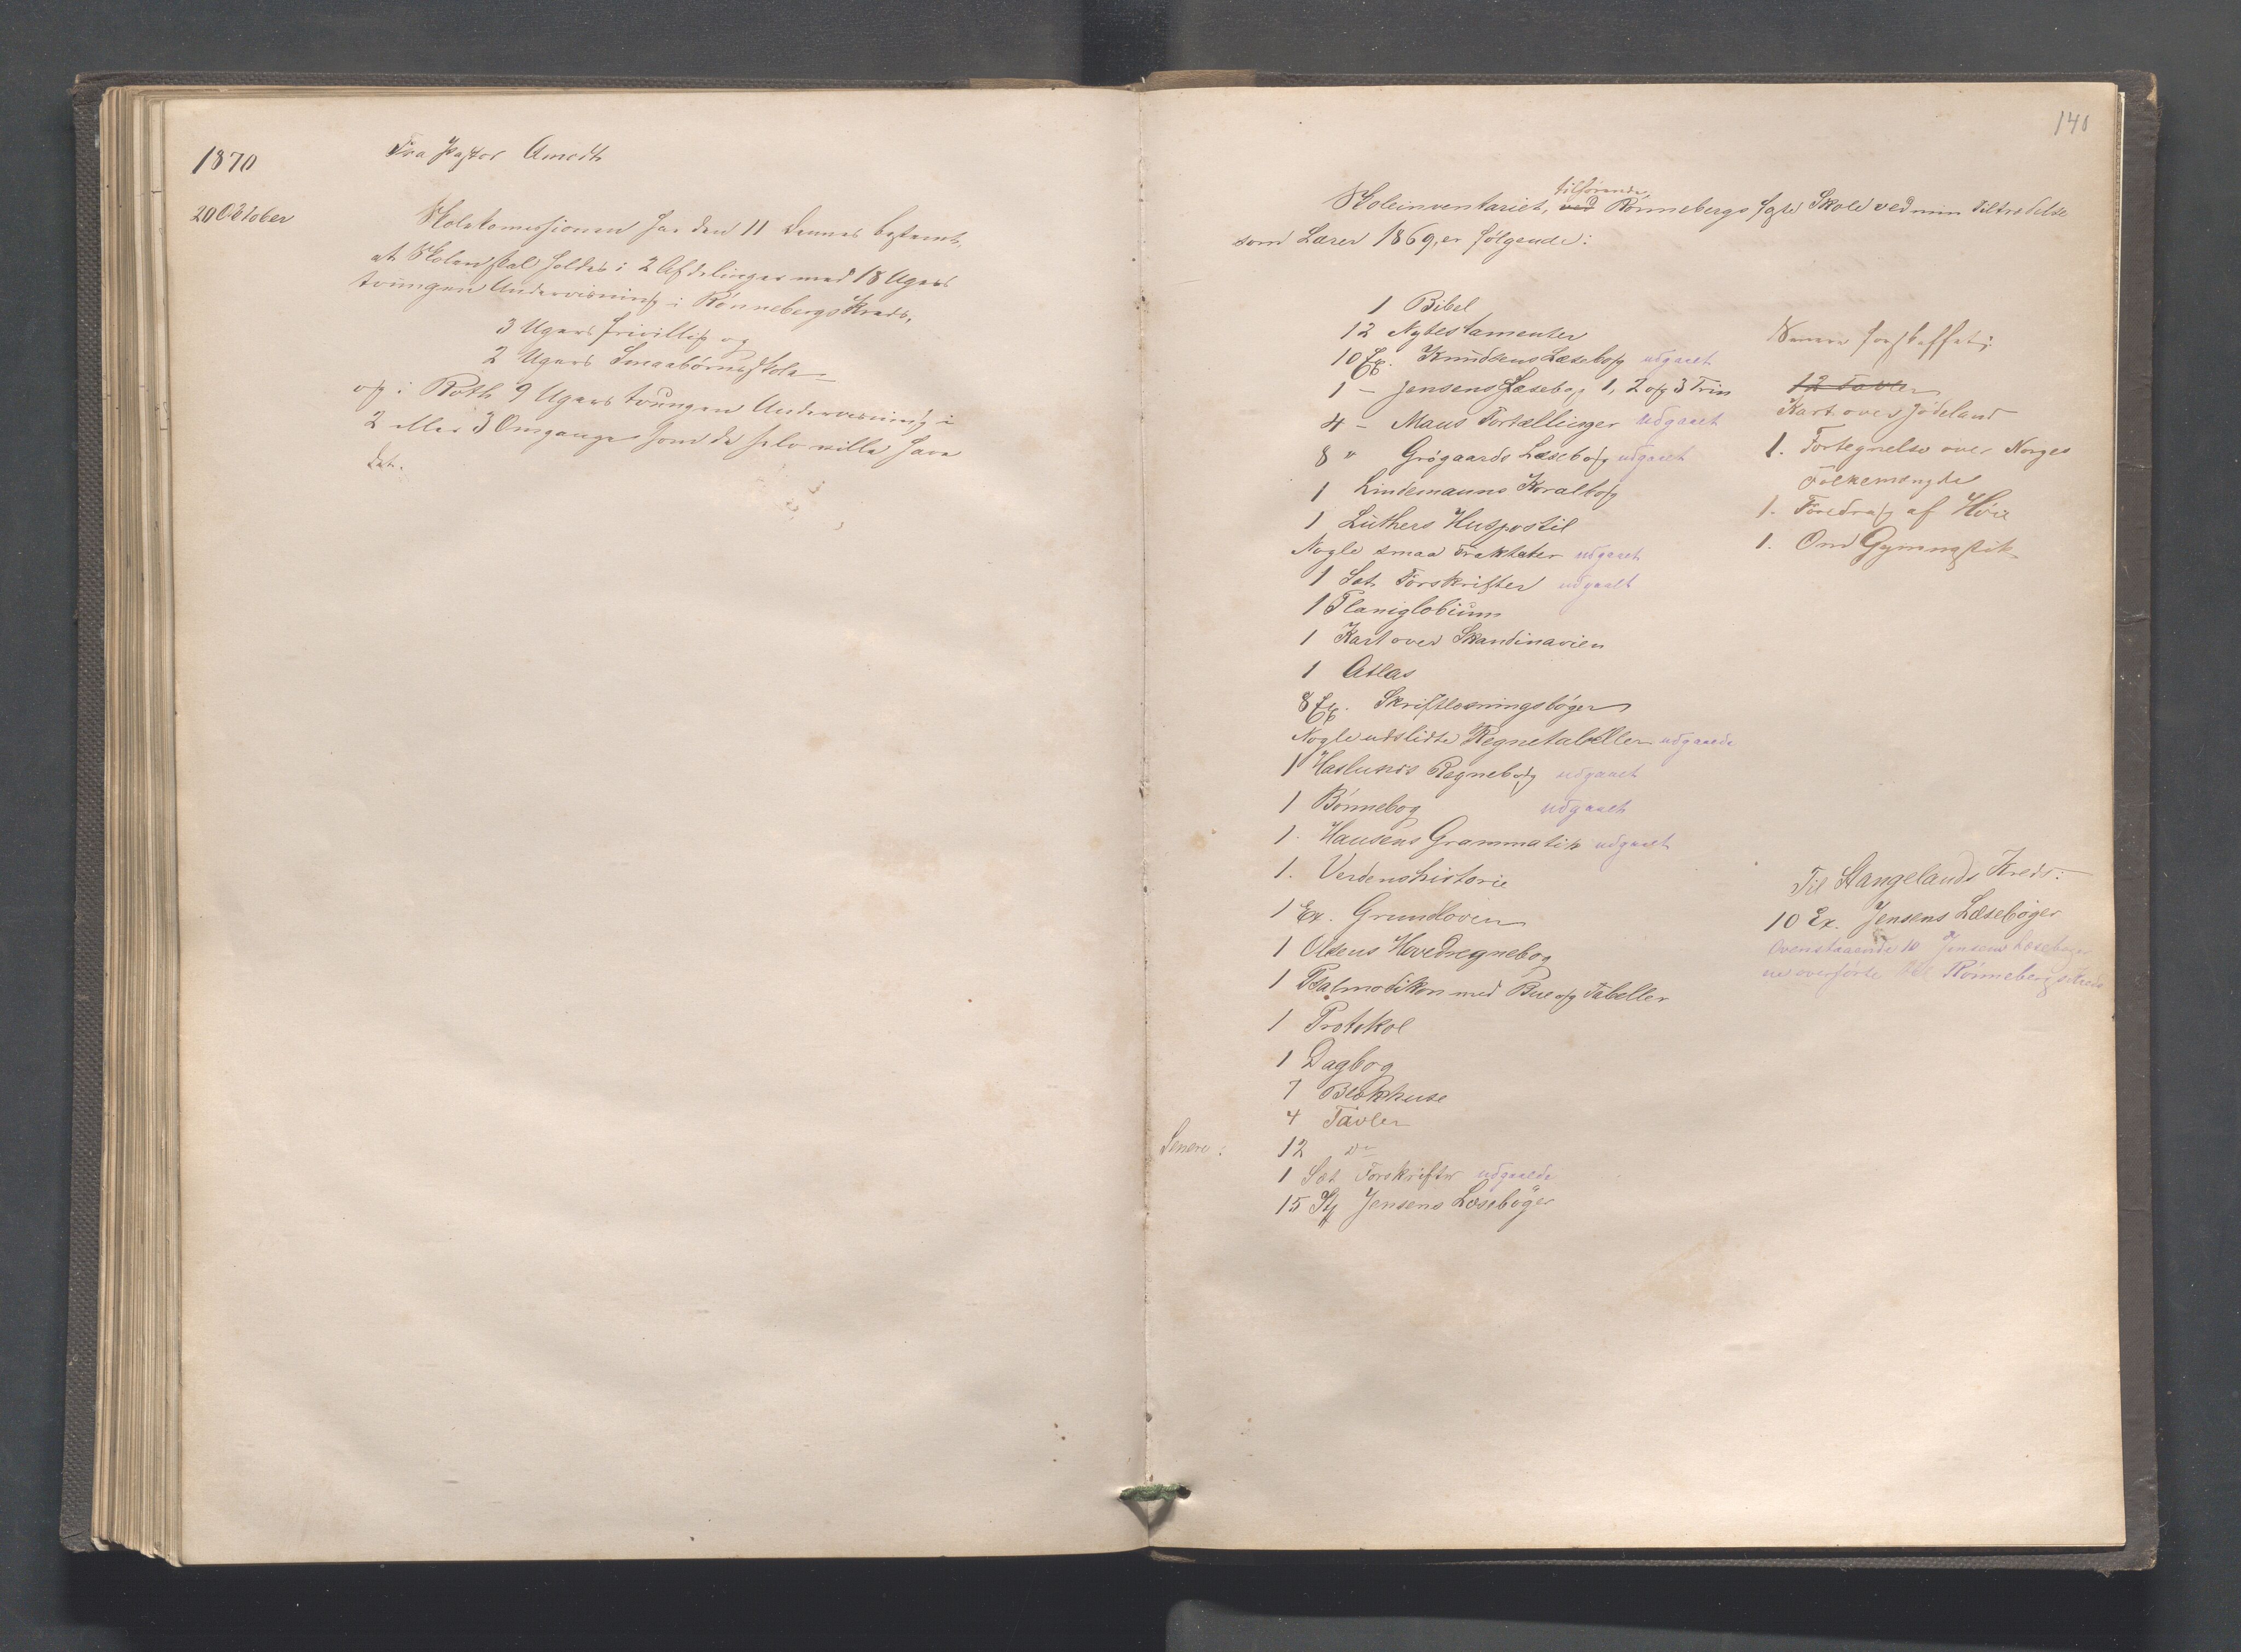 1870
Fra Pastor Arnedt
20 October
Skolekommissionen har den 11 dennes bestemt,
at Skolen skal holdes i 2 Afdelinger med 18 Ugers
tvungen Undervisning i Rønnebergs Kreds,
3 Ugers frivillig og
2 Ugers Smaabørnsskole
og i Roth 9 Ugers tvungen Undervisning i
2 eller 3 Omgange som de selv ville have
det.
140
tilhørende
Skoleinventariet, ved Rønnebergs faste Skole ved min Tiltrædelse
som Lærer 1869, er følgende:
1 Bibel
12 Nytestamenter
10 Ex. Knudsens Læsebog udgaaet
1 – Jensens Læsebog 1, 2 og 3 Trin
4 – Maus Fortællinger udgaaet
8 " Grøgaards Læsebog udgaaet
1 Lindemanns Koralbog
1 Luthers Huspostil
Nogle smaa Traktater udgaaet
1 Sæt Forskrifter udgaaet
1 Planiglobium
1 Kart over Skandinavien
1 Atlas
8 Ex. Skriftlæsningsbøger
Nogle udslidte Regnetabeller udgaaede
1 Haslunds Regnebog udgaaet
1 Bønnebog udgaaet
1. Hansens Grammatik udgaaet
1. Verdenshistorie
1 Ex. Grundloven
1 Olsens Hovedregnebog
1 Psalmodikon med Bue og Tabeller
1 Protokol
1 Dagbog
7 Blækhuse
4 Tavler
Senere: 12 do
1 Sæt Forskrifter udgaaede
15 St Jensens Læsebøger
Senere forskaffet:
12 Tavler
Kart over Jødeland
1. Fortegnelse over Norges
Folkemængde
1. Foredrag af Høie
1. Om Gymnastik
Til Stangelands Kreds:
10 Ex. Jensens Læsebøger
Ovenstaaende 10 Jensens Læsebøger
er overførte til Rønnebergs Kreds